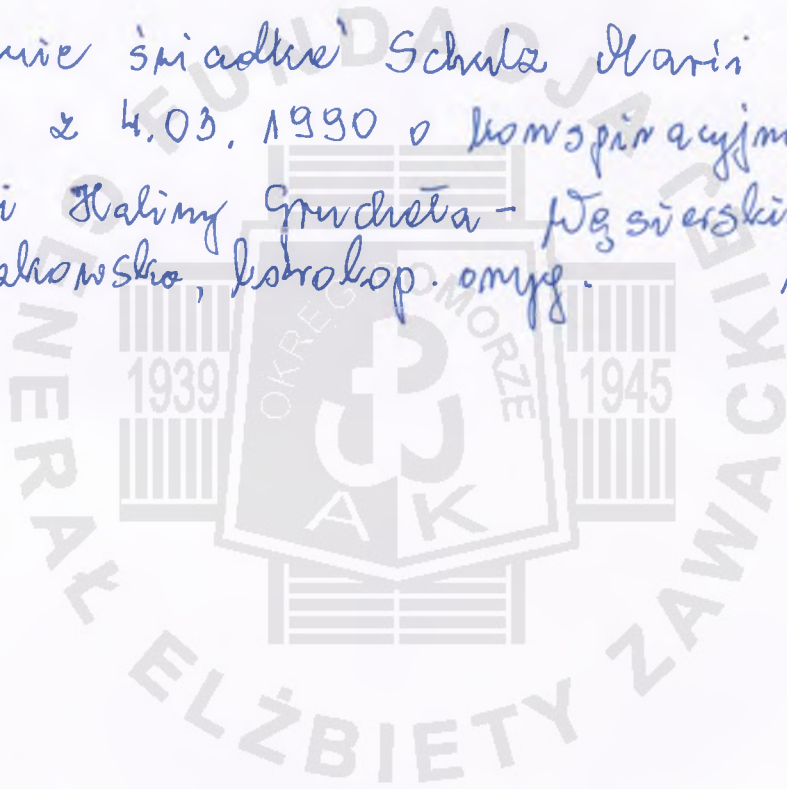 świadka Schulz Marii
z 4.03.1990 o konspiracyjn
i Haliny Gruchała-Węsierski
kserokop. oryg.
FUNDACJA
GENERAŁ ELŻBIETY ZAWACKIEJ
OKRĘG POMORZE
1939
1945
AK